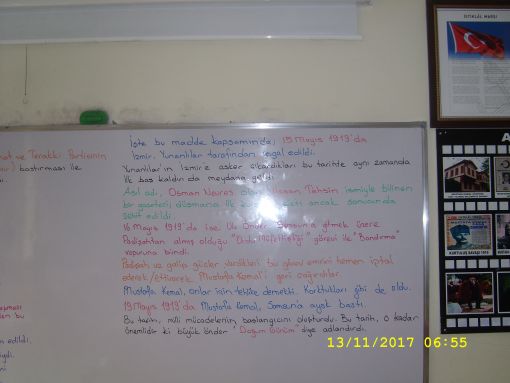 İSTİKLÂL MARŞI
ve Terakki Partisinin
bastırması ile
İşte bu madde kapsamında, 15 Mayıs 1919'da
İzmir, Yunanlılar tarafından işgal edildi.
Yunanlıların İzmir'e asker çıkardıkları bu tarihte aynı zamanda
ilk baş kaldırı da meydana geldi.
Asıl adı, Osman Nevres olan Hasan Tahsin ismiyle bilinen
bir gazeteci düşmana ilk kurşunu sıktı ancak sonucunda
şehit edildi.
16 Mayıs 1919'da ise, Ulu Önder, Samsun'a gitmek üzere
Padişahtan almış olduğu "Ordu Müfettişliği" görevi ile "Bandırma"
vapuruna bindi.
Padişah ve galip güçler verdikleri bu görev emrini hemen iptal
ederek/ettirerek Mustafa Kemal'i geri çağırdılar.
Mustafa Kemal, onlar için tehlike demekti. Korktukları gibi de oldu.
19 Mayıs 1919'da Mustafa Kemal, Samsun'a ayak bastı.
Bu tarih, milli mücadelenin başlangıcını oluşturdu. Bu tarih, o kadar
önemlidir ki büyük önder "Doğum Günüm" diye adlandırdı.
KURTULUŞ SAVAŞI
13/11/2017 06:55